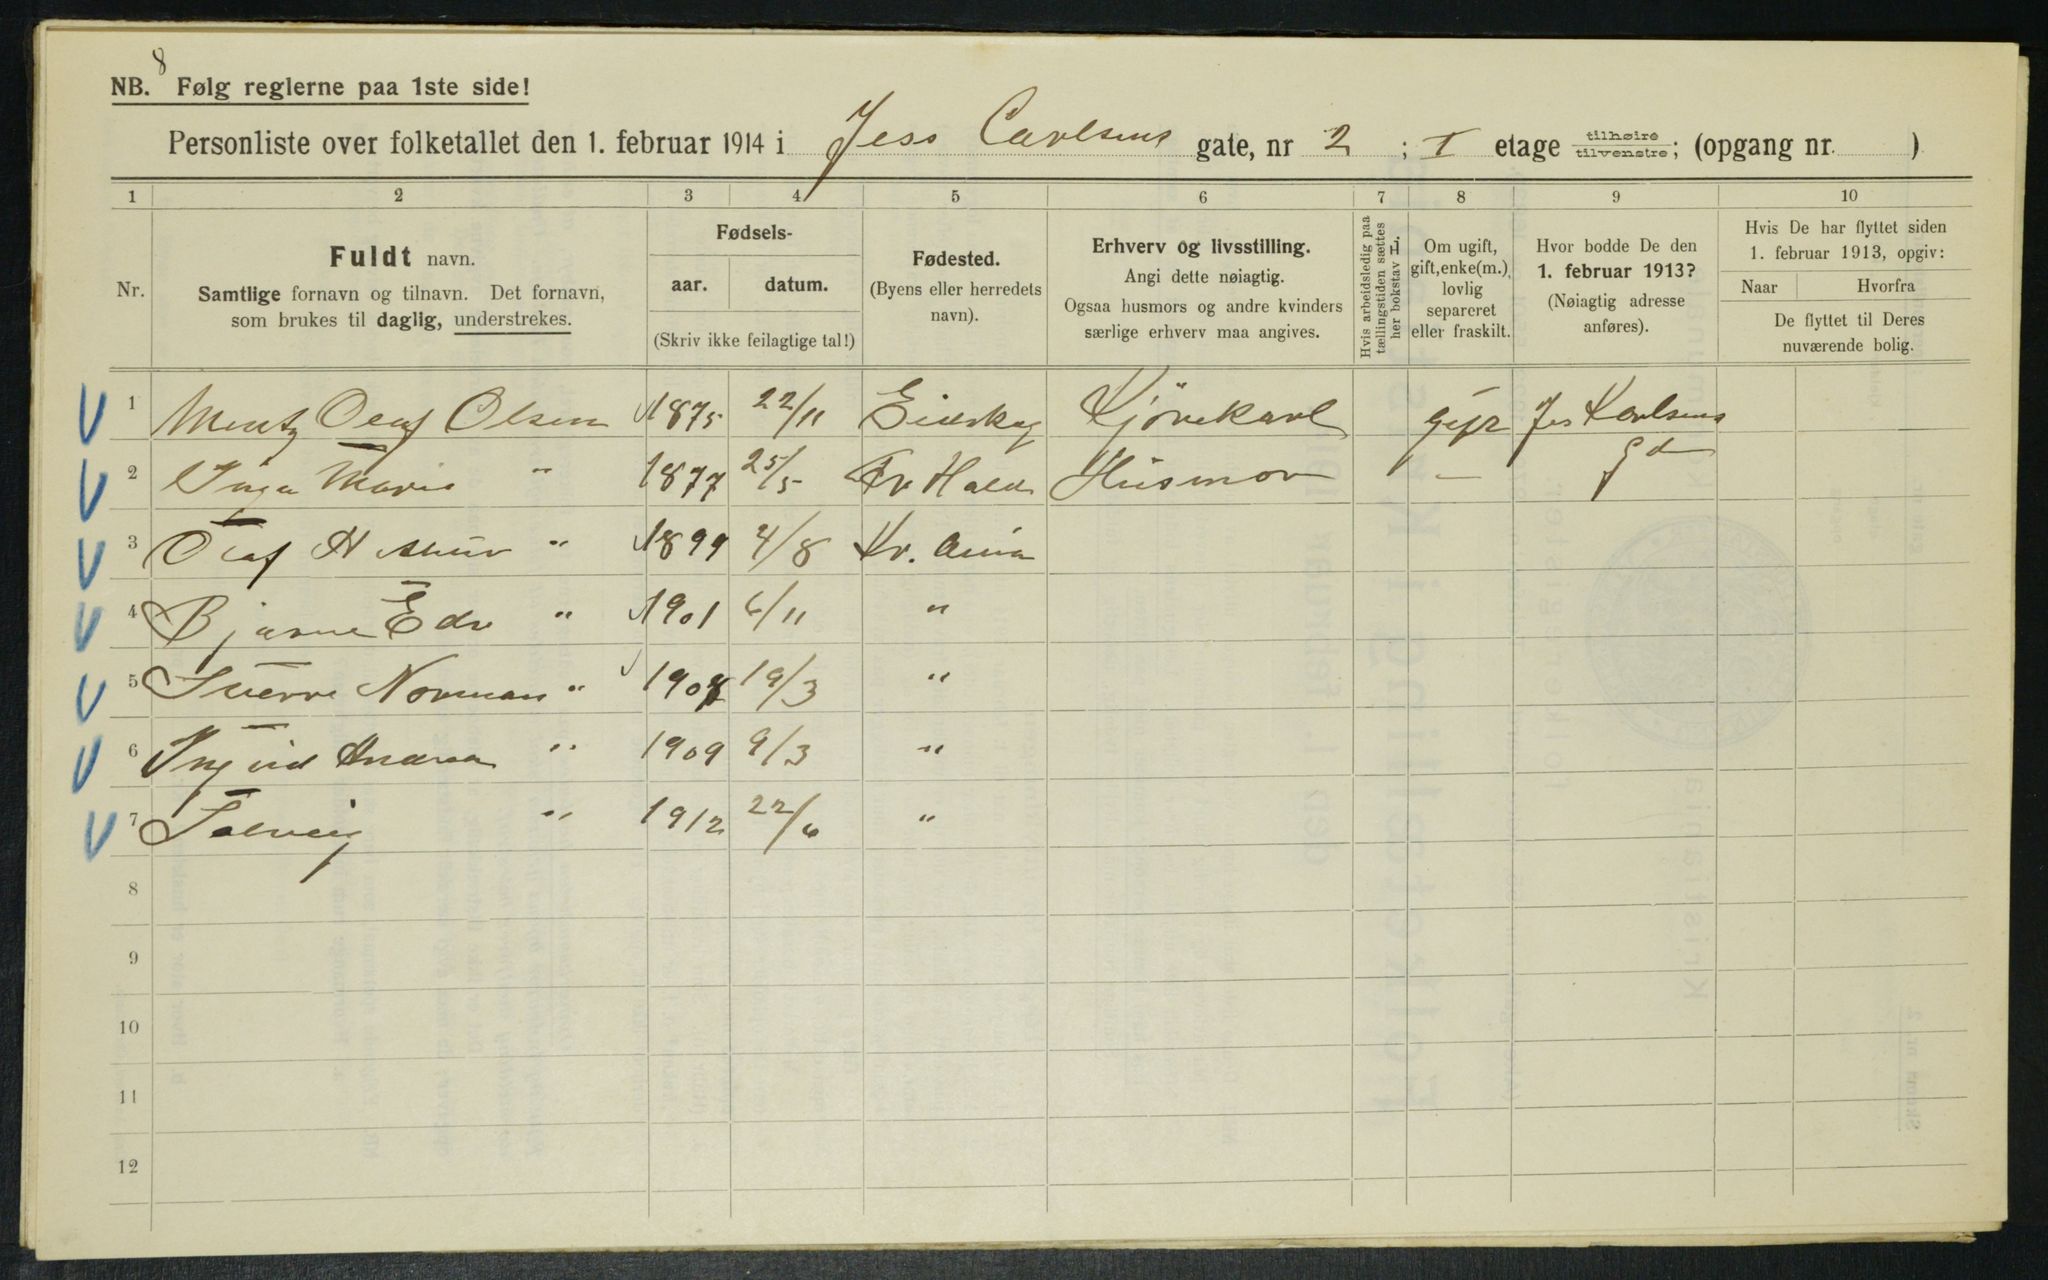 8
NB. Følg reglerne paa 1ste side!
Personliste over folketallet den 1. februar 1914 i Jess Carlsens gate, nr 2 ; I etage tilhøire/tilvenstre; (opgang nr. )
1 2 3 4 5 6 7 8 9 10
Nr.
Fuldt navn.
Samtlige fornavn og tilnavn. Det fornavn,
som brukes til daglig, understrekes.
Fødsels-
aar. datum.
(Skriv ikke feilagtige tal!)
Fødested.
(Byens eller herredets
navn).
Erhverv og livsstilling.
Angi dette nøiagtig.
Ogsaa husmors og andre kvinders
særlige erhverv maa angives.
Hvis arbeidsledig paa
tællingstiden sættes
her bokstav L
Om ugift,
gift, enke(m.),
lovlig
separeret
eller fraskilt.
Hvor bodde De den
1. februar 1913?
(Nøiagtig adresse
anføres).
Hvis De har flyttet siden
1. februar 1913, opgiv:
Naar Hvorfra
De flyttet til Deres
nuværende bolig.
1 Mentz Olaf Olsen 1875 22/11 Eidskog Kjørekarl gift Jes Karlsens
gd
2 Inga Marie " 1877 25/5 Fr Hald Husmor –
3 Olaf " 1899 4/8 Kr. ania
4 Bjarne " 1901 6/11 "
5 Sverre Norman " 1908 19/3 "
6 Ingrid Andrea " 1909 9/3 "
7 Solveig " 1912 22/6 "
8
9
10
11
12